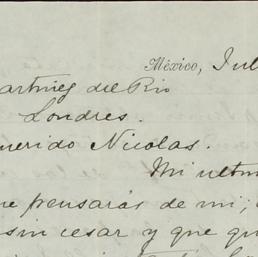 México, Jul
artinez del Rio
Londres.
uerido Nicolas.
Mi ultm
e pensarás de mi,
sin cesar y que qu